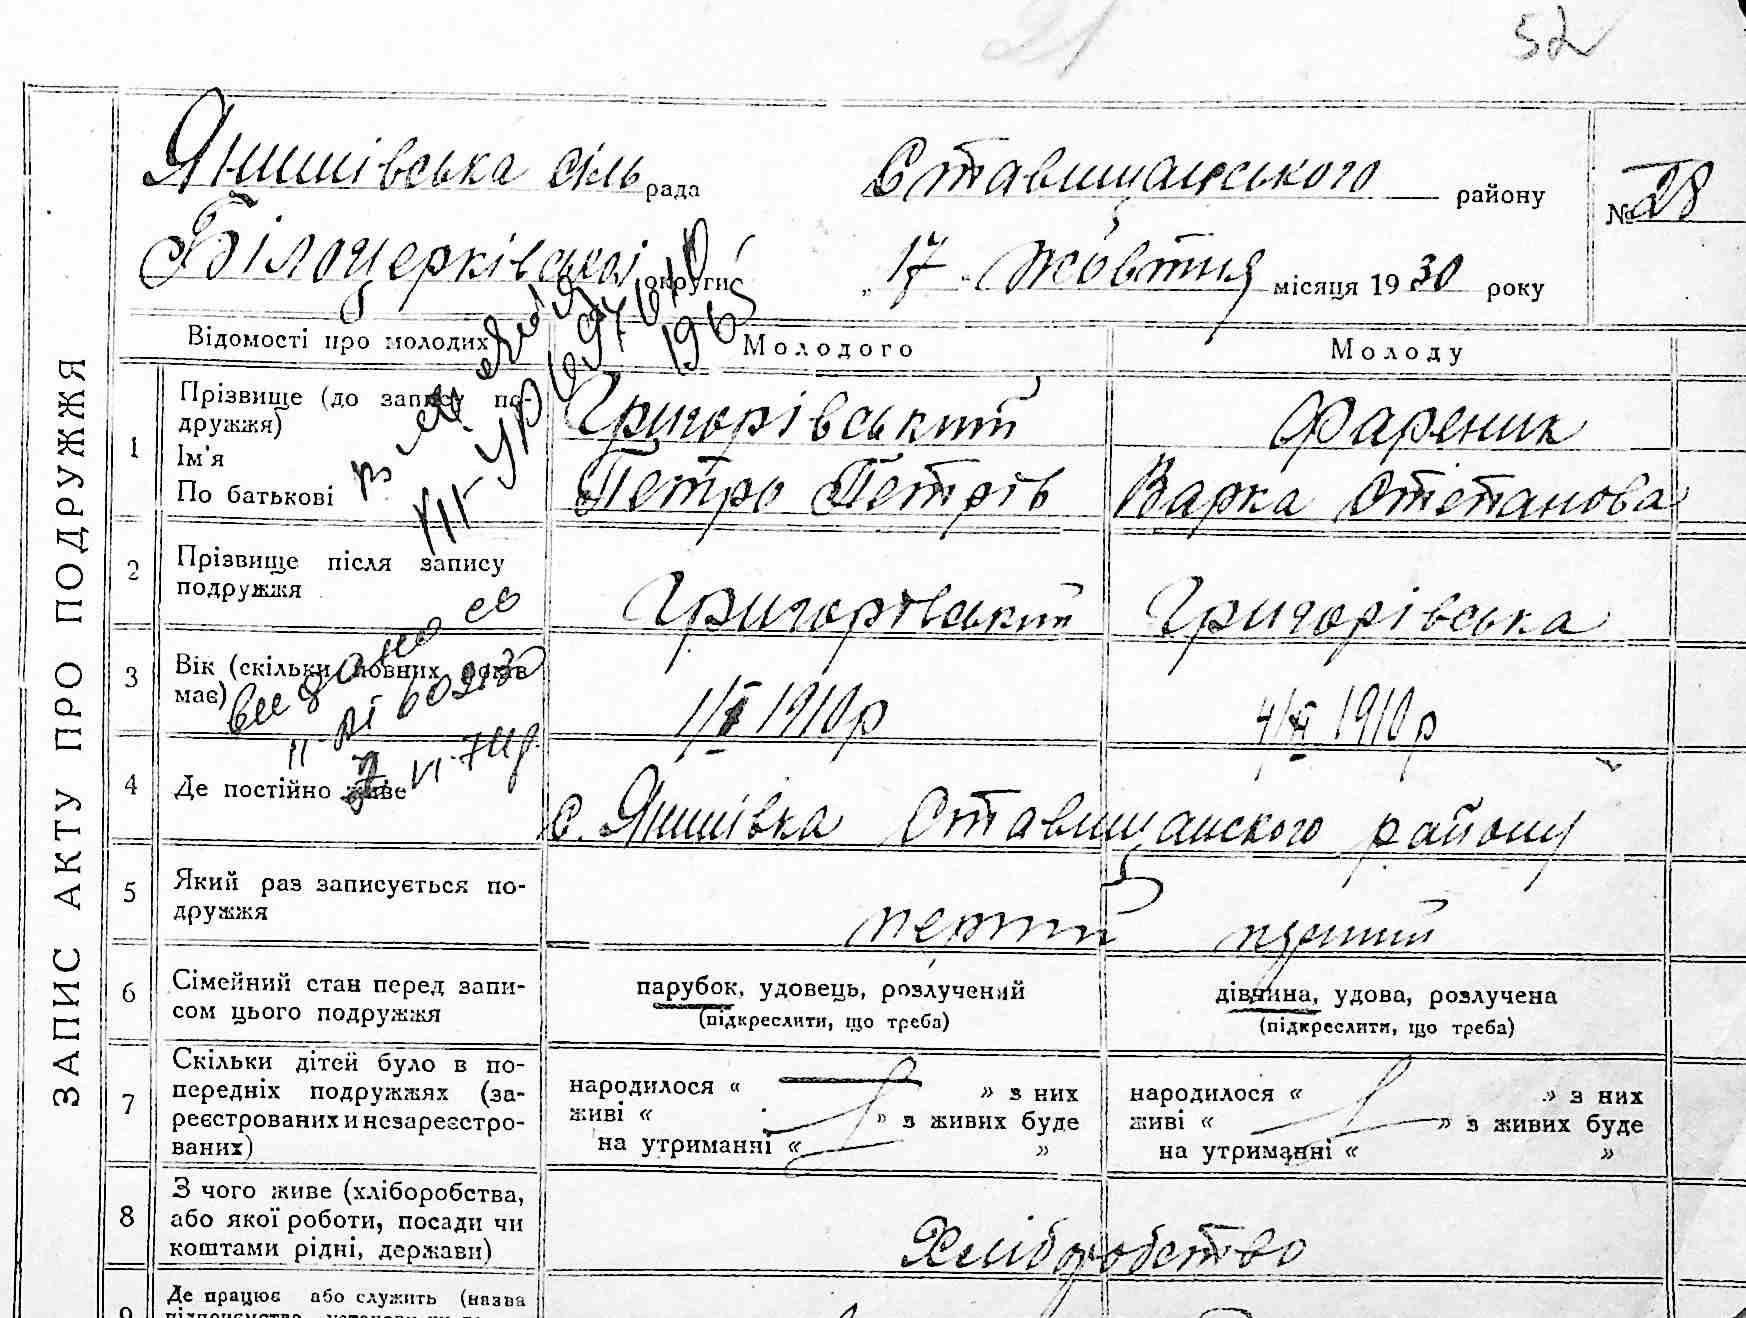 52
21
Янишівська сіль рада Ставищанського району
№ 28
Білоцерківської округи „17“ жовтня місяця 1930 року
ЗАПИС АКТУ ПРО ПОДРУЖЖЯ
Відомості про молодих Молодого Молоду
1 Прізвище (до запису по-
дружжя)
Григорівський Фареник
Ім'я
По батькові
Петро Петрів Варка Степанова
1965
2 Прізвище після запису
подружжя
Григорівський Григорівська
3 Вік (скільки повних років
має)
1910 р 1910 р
видано св
4 Де постійно живе
с. Янишівка Ставищанского району
5 Який раз записується по-
дружжя
перший перший
6 Сімейний стан перед запи-
сом цього подружжя
парубок, удовець, розлучений дівчина, удова, розлучена
(підкреслити, що треба) (підкреслити, що треба)
7 Скільки дітей було в по-
передніх подружжях (за-
реєстрованих и незареєстро-
ваних)
народилося « » з них народилося « » з них
живі « » з живих буде живі « » з живих буде
на утриманні « » на утриманні « »
8 З чого живе (хліборобства,
або якої роботи, посади чи
коштами рідні, держави)
Хліборобство
9 Де працює або служить (назва